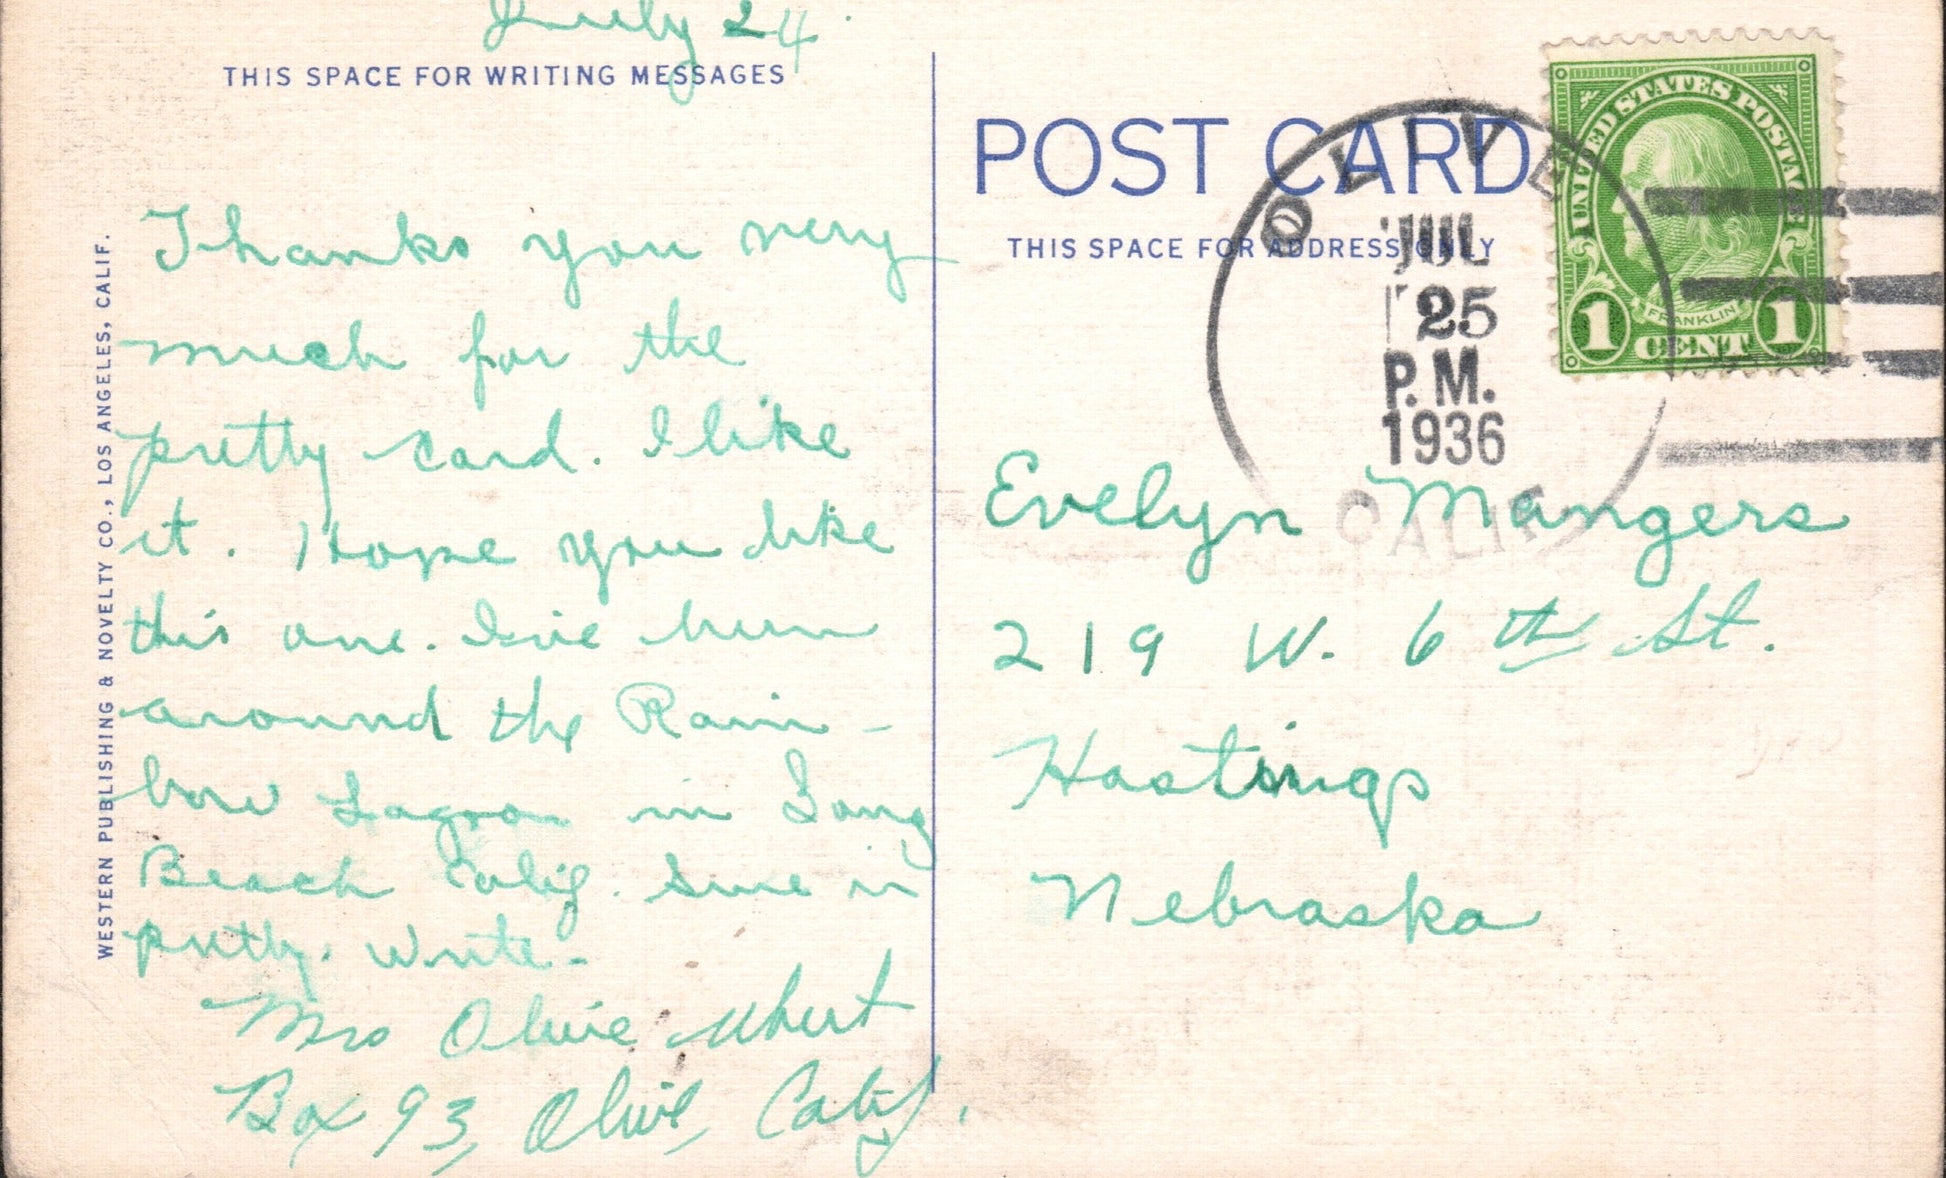 July 24
THIS SPACE FOR WRITING MESSAGES
Thanks you very
much for the
pretty card. I like
it. Hope you like
this one. I've been
around the Rain-
bow Lagoon in Long
Beach Calif. Sure is
pretty. Write-
Mrs Olive
Box 93, Olive, Calif.
WESTERN PUBLISHING & NOVELTY CO., LOS ANGELES, CALIF.
POST CARD
THIS SPACE FOR ADDRESS ONLY
OLIVE
JUL
25
P.M.
1936
CALIF
UNITED STATES POSTAGE
FRANKLIN
1 CENT 1
Evelyn Mangers
219 W. 6th St.
Hastings
Nebraska